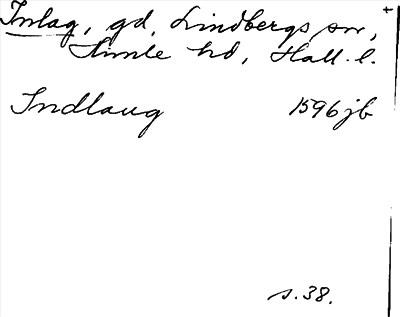 Inlag, gd, Lindbergs sn,
Himle hd, Hall. l.
Indlaug 1596 jb
s. 38.